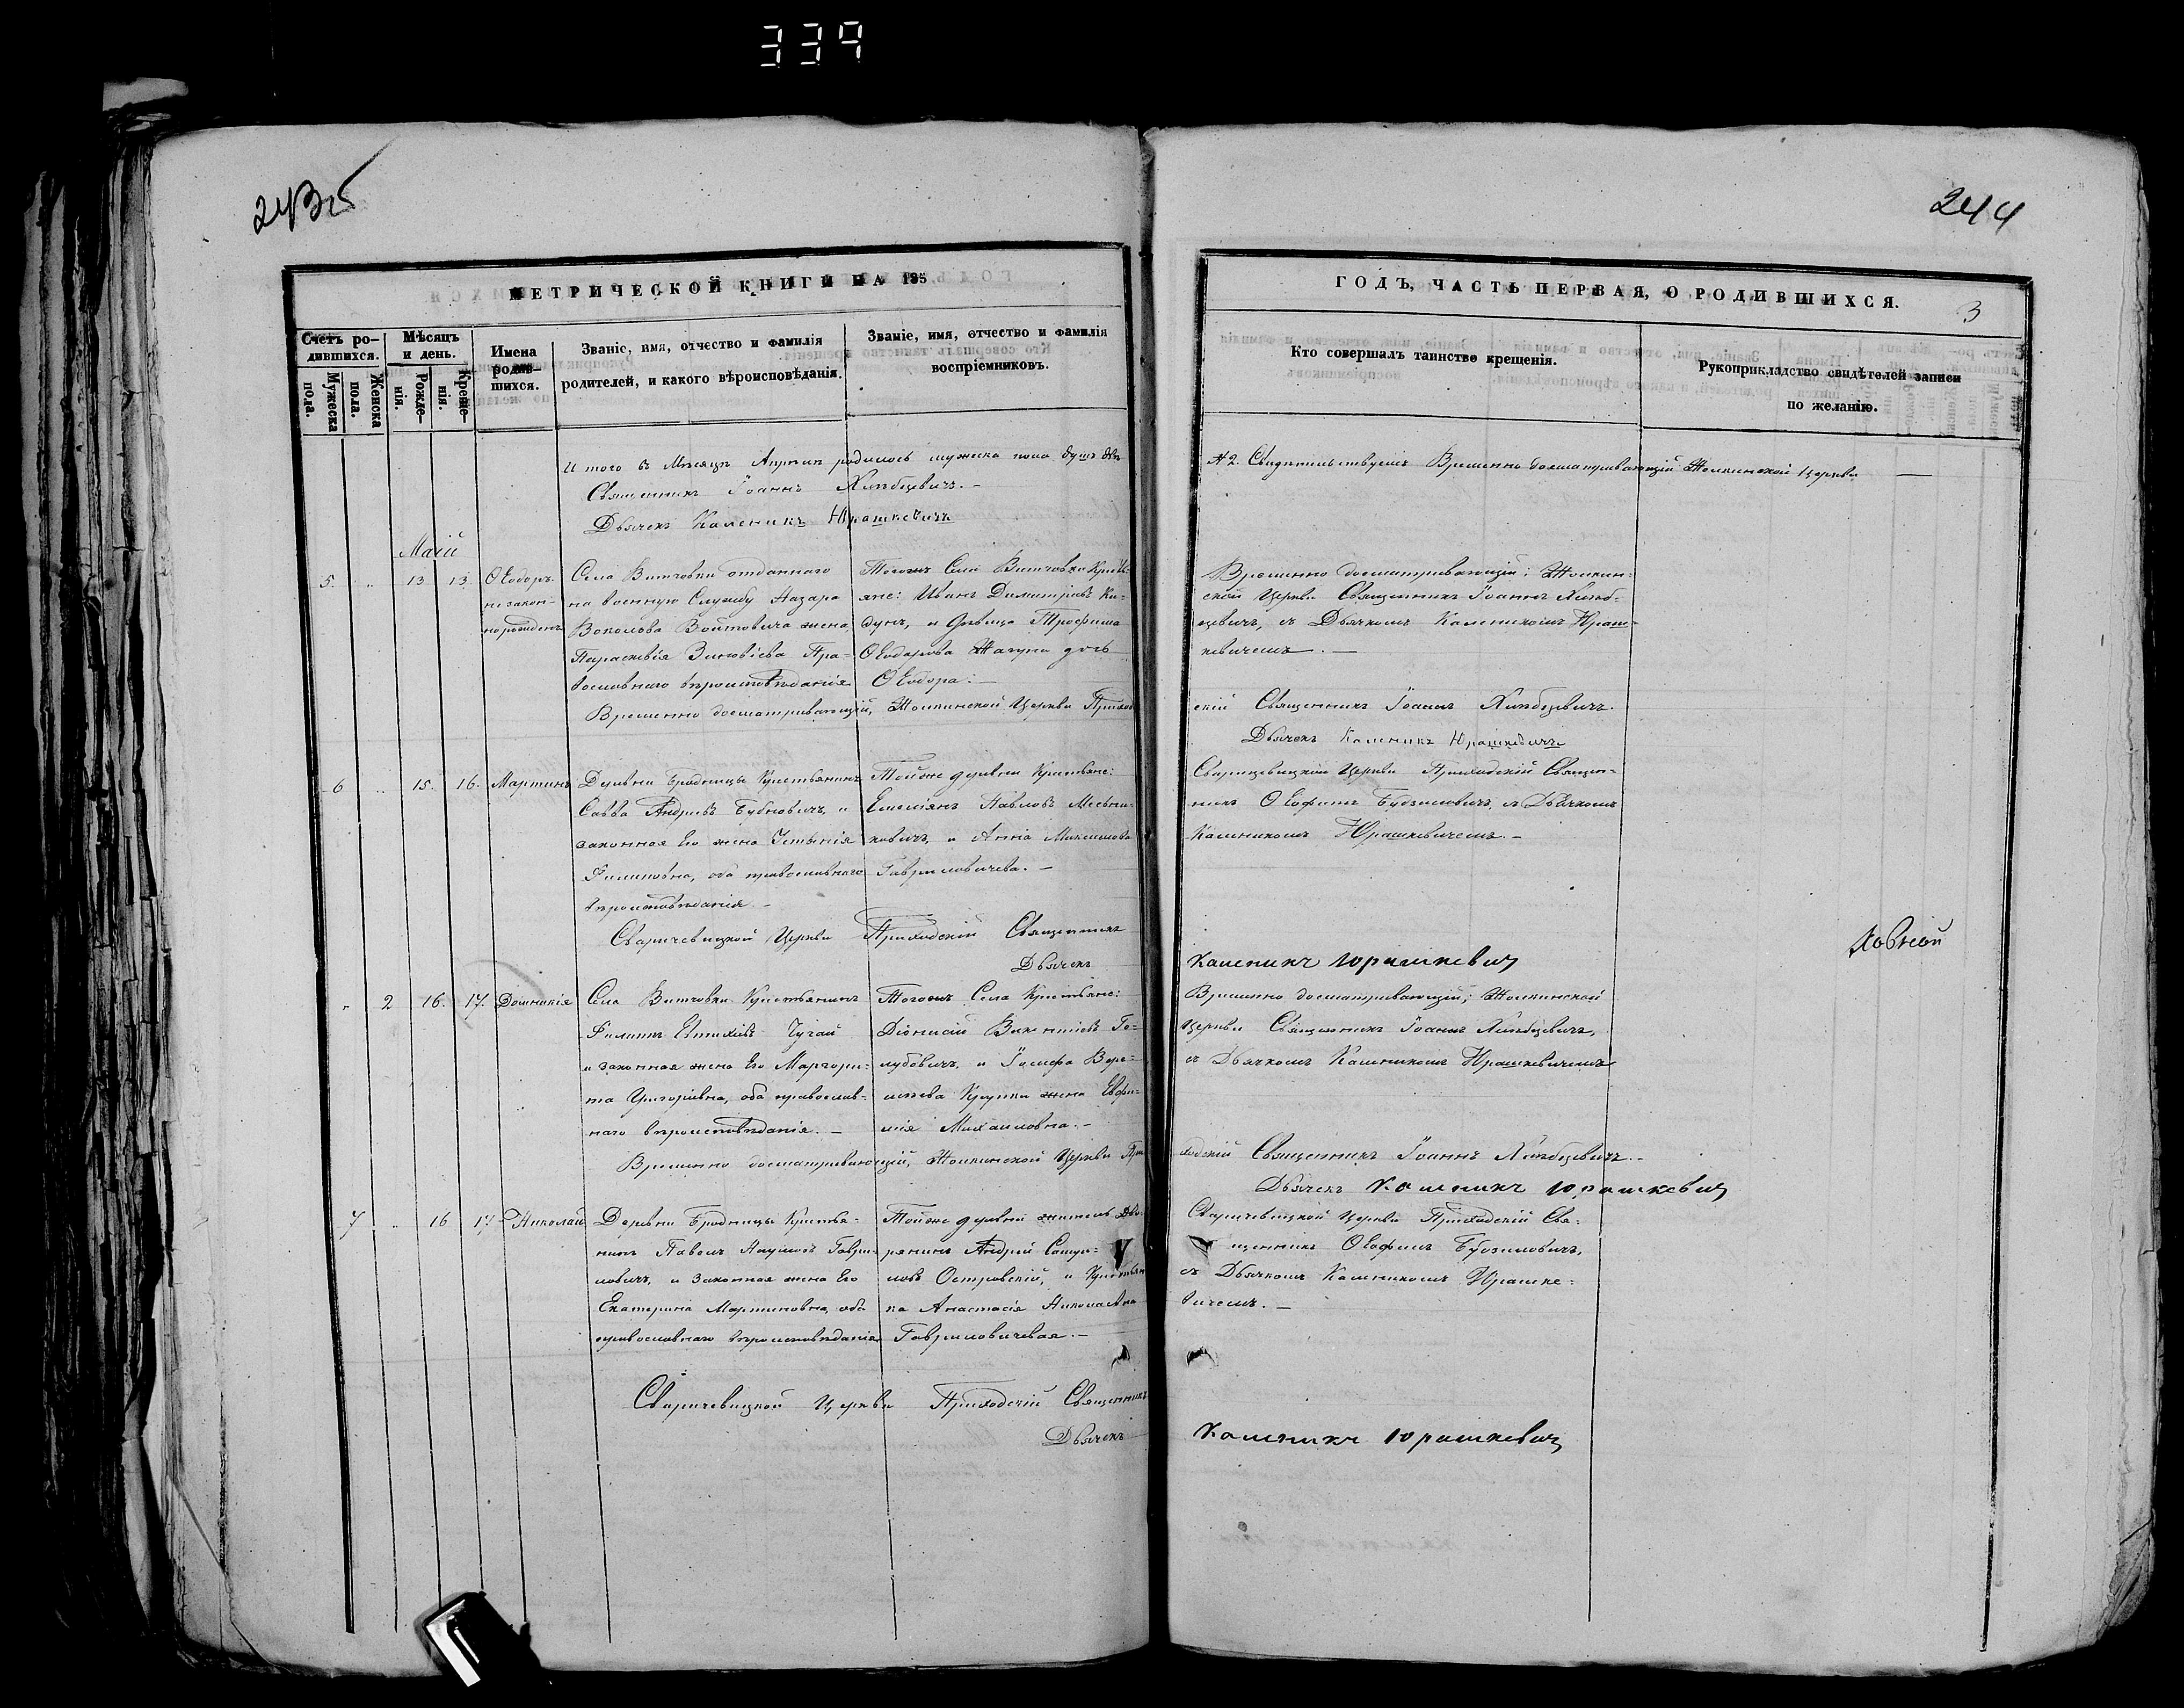 339
243об
244
МЕТРИЧЕСКОЙ КНИГИ НА 185
ГОДЪ, ЧАСТЬ ПЕРВАЯ, О РОДИВШИХСЯ.
3
Счетъ ро-
дившихся.
Мужеска
пола.
Женска
пола.
Мѣсяцъ
и день.
Рожде-
нія.
Креще-
нія.
Имена
родив-
шихся.
Званіе, имя, отчество и фамилія
родителей, и какого вѣроисповѣданія.
Званіе, имя, отчество и фамилія
воспріемниковъ.
Кто совершалъ таинство крещенія.
Рукоприкладство свидѣтелей записи
по желанію.
И того въ Мѣсяцѣ Апрѣлѣ родилось мужеска пола душъ двѣ
№ 2. Свидѣтельствуемъ Временно досматривающій Жолкинской Церкви
Священникъ Іоаннъ Хлѣбцевичъ. –
Дьячекъ Каленикъ Юрашкевичъ
Маій
5. „ 13 13. Ѳеодоръ
незакон-
норожденъ
Села Витчовки отданнаго
на военную Службу Назара
Войтовича жена,
Параскевія Зиновіева Пра-
вославнаго вѣроисповѣданія
Тогожъ Села Витчовки Кресть-
яне: Иванъ Димитріевъ Ки-
дунъ, и дѣвица Трофима
Ѳеодорова дочь
Ѳеодора: –
Временно досматривающій; Жолкин-
ской Церкви Священникъ Іоаннъ Хлѣб-
цевичъ, съ Дьячкомъ Каленикомъ Юраш-
кевичемъ. –
Временно досматривающій, Жолкинской Церкви Приход
скій Священникъ Іоаннъ Хлѣбцевичъ.
Дьячекъ Каленикъ Юрашкевичъ
6 „ 15. 16. Мартинъ
Деревни Бродницы Крестьянинъ
Савва Андреевъ Бубновичъ, и
законная Его жена Устинія
Филиповна, оба православнаго
вѣроисповѣданія –
Тойже деревни Крестьяне:
Емеліянъ Павловъ
и Анна Максимова
Гавриловичева. –
Сваричевицкой Церкви Приходскій Священ-
никъ Ѳеофилъ Будзиловичъ, съ Дьячкомъ
Каленикомъ Юрашкевичемъ. –
Сваричевицкой Церкви Приходскій Священникъ
Дьячекъ
Каленикъ Юрашкевич
„ 2 16. 17. Домникія
Села Витчовки Крестьянинъ
Филипъ
и законная жена Его Маргари-
та Григоріевна, оба православ-
наго вѣроисповѣданія. –
Тогожъ Села Крестьяне:
Діонисій Викентіевъ Го-
лубовичъ, и Іосифа
Крупки жена Евфи-
мія Михаиловна. –
Временно досматривающій; Жолкинской
Церкви Священникъ Іоаннъ Хлѣбцевичъ,
съ Дьячкомъ Каленикомъ Юрашкевичемъ
Временно досматривающій, Жолкинской Церкви При
ходскій Священникъ Іоаннъ Хлѣбцевичъ. –
Дьячекъ Каленикъ Юрашкевич
7 „ 16 17. Николай
Деревни Бродницы Крестья-
нинъ Павелъ Наумовъ Гаври-
ловичъ, и законная жена Его
Екатерина Мартиновна, оба
православнаго вѣроисповѣданія
Тойже деревни житель Дво-
рянинъ Андрей Самуи-
ловъ Островскій, и Крестьян
ка Анастасія Николаевна
Гавриловичевая. –
Сваричевицкой Церкви Приходскій Свя-
щенникъ Ѳеофилъ Будзиловичъ,
съ Дьячкомъ Каленикомъ Юрашке-
вичемъ. –
Сваричевицкой Церкви Приходскій Священникъ
Дьячекъ
Каленикъ Юрашкевич